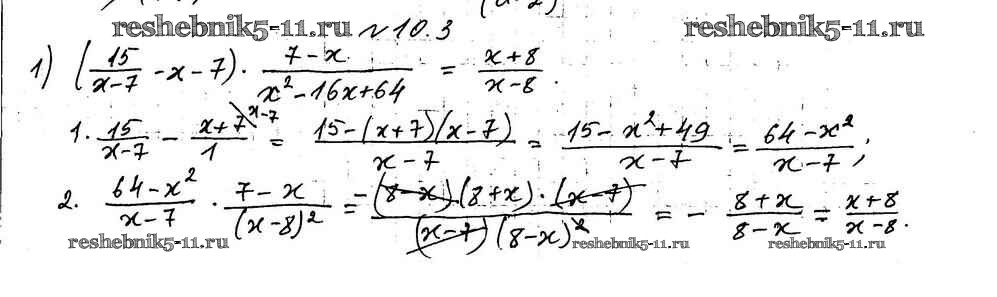 reshebnik5-11.ru №10.3 reshebnik5-11.ru
1) (15/(x-7) - x - 7) · (7-x)/(x² - 16x + 64) = (x+8)/(x-8).
1. 15/(x-7) - (x+7)/1 ^(x-7) = (15-(x+7)(x-7))/(x-7) = (15-x²+49)/(x-7) = (64-x²)/(x-7);
2. (64-x²)/(x-7) · (7-x)/(x-8)² = -((8-x)(8+x)·(x-7))/((x-7)(8-x)²) = - (8+x)/(8-x) = (x+8)/(x-8).
reshebnik5-11.ru reshebnik5-11.ru reshebnik5-11.ru